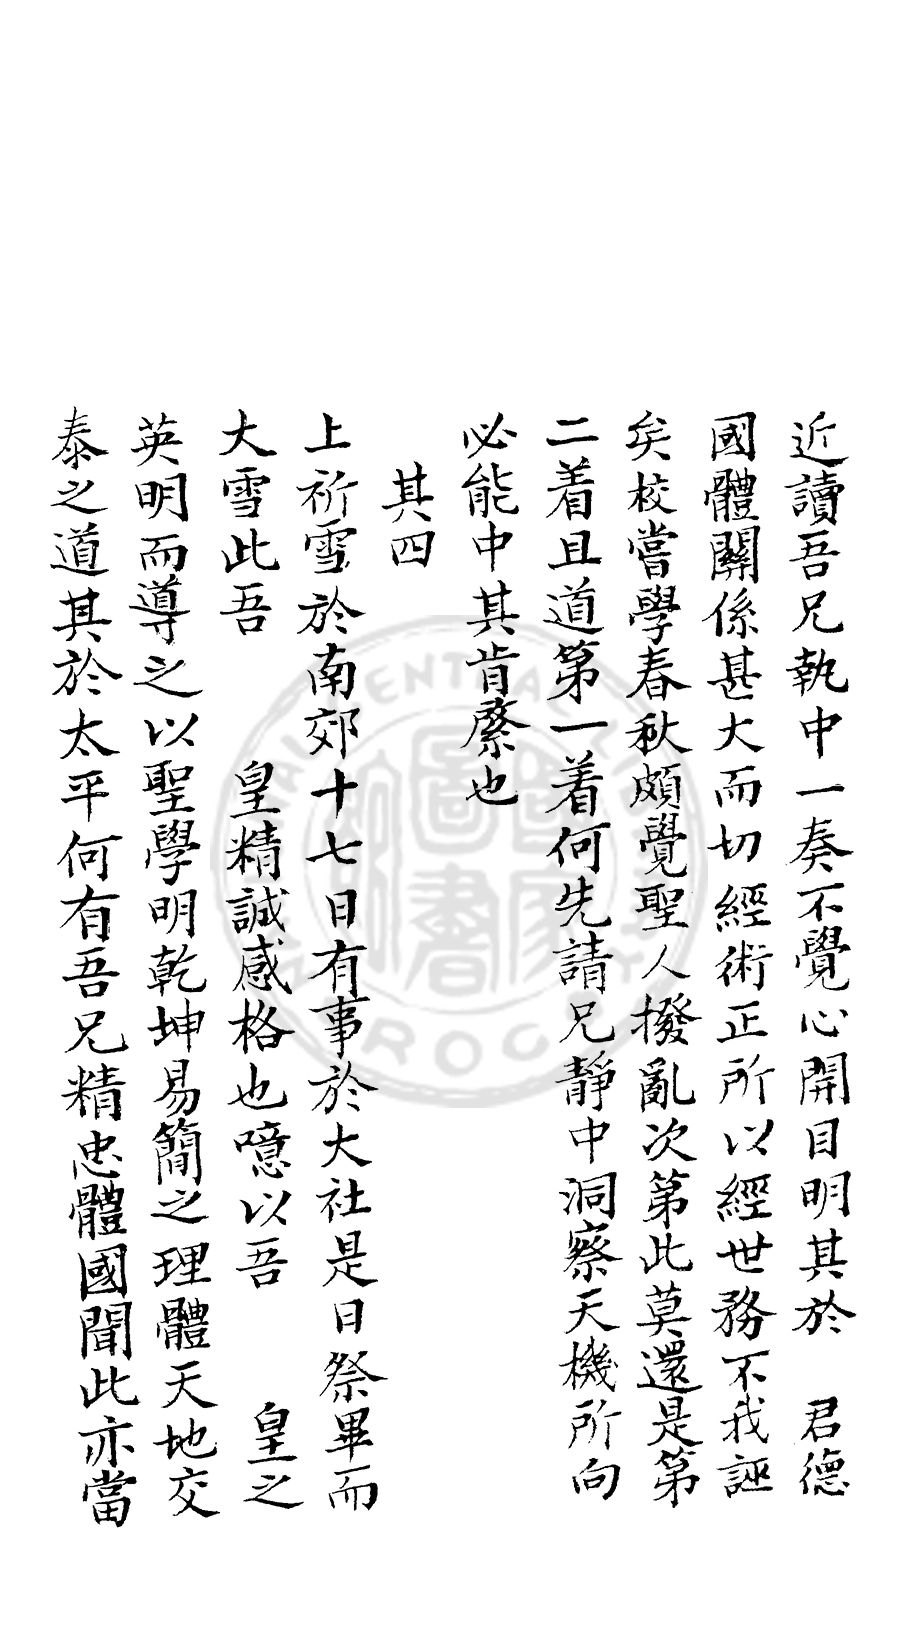 近讀吾兄執中一奏不覺心開目明其於　君德
國體關係甚大而切經術正所以經世務不我誣
矣校嘗學春秋頗覺聖人撥亂次第此莫還是第
二着且道第一着何先請兄靜中洞察天機所向
必能中其肯綮也
其四
上祈雪於南郊十七日有事於大社是日祭畢而
大雪此吾　皇精誠感格也噫以吾　皇之
英明而導之以聖學明乾坤易簡之理體天地交
泰之道其於太平何有吾兄精忠體國聞此亦當